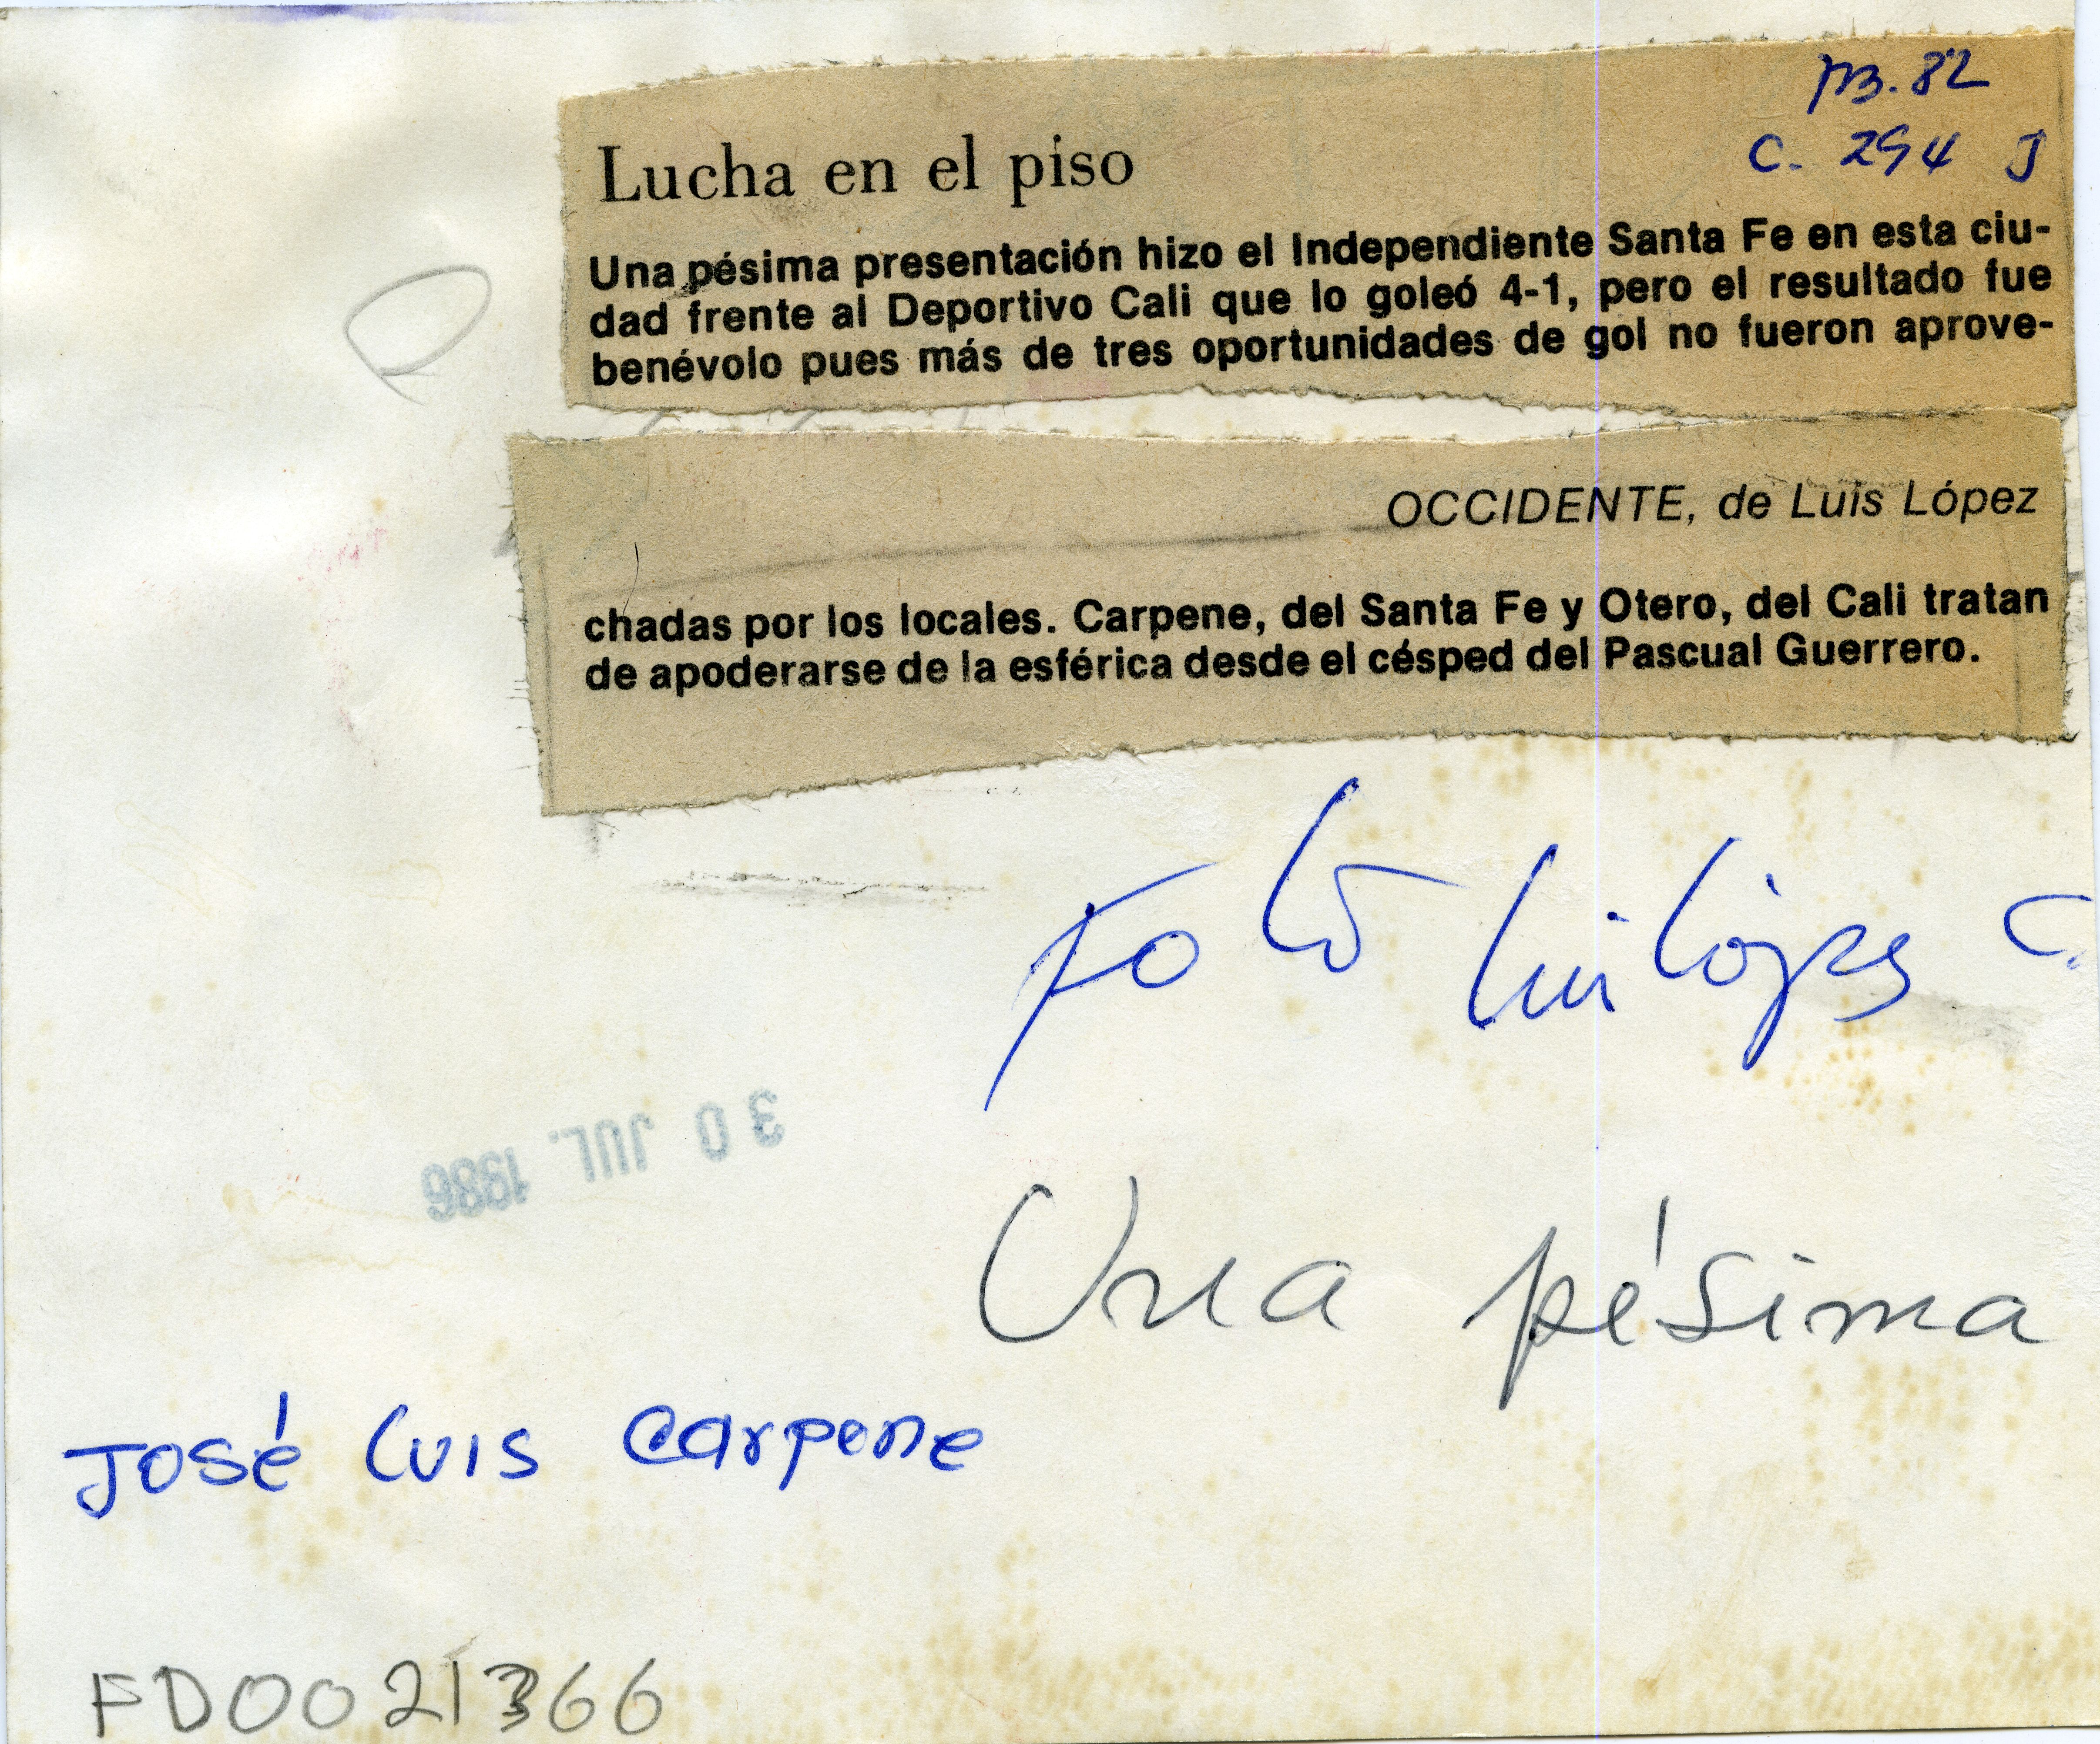 m. 82
C. 294 J
Lucha en el piso
Una pésima presentación hizo el Independiente Santa Fe en esta ciu-
dad frente al Deportivo Cali que lo goleó 4-1, pero el resultado fue
benévolo pues más de tres oportunidades de gol no fueron aprove-
OCCIDENTE, de Luis López
chadas por los locales. Carpene, del Santa Fe y Otero, del Cali tratan
de apoderarse de la esférica desde el césped del Pascual Guerrero.
Foto Luis López C.
30 JUL. 1986
Una pésima
José Luis Carpene
FD0021366